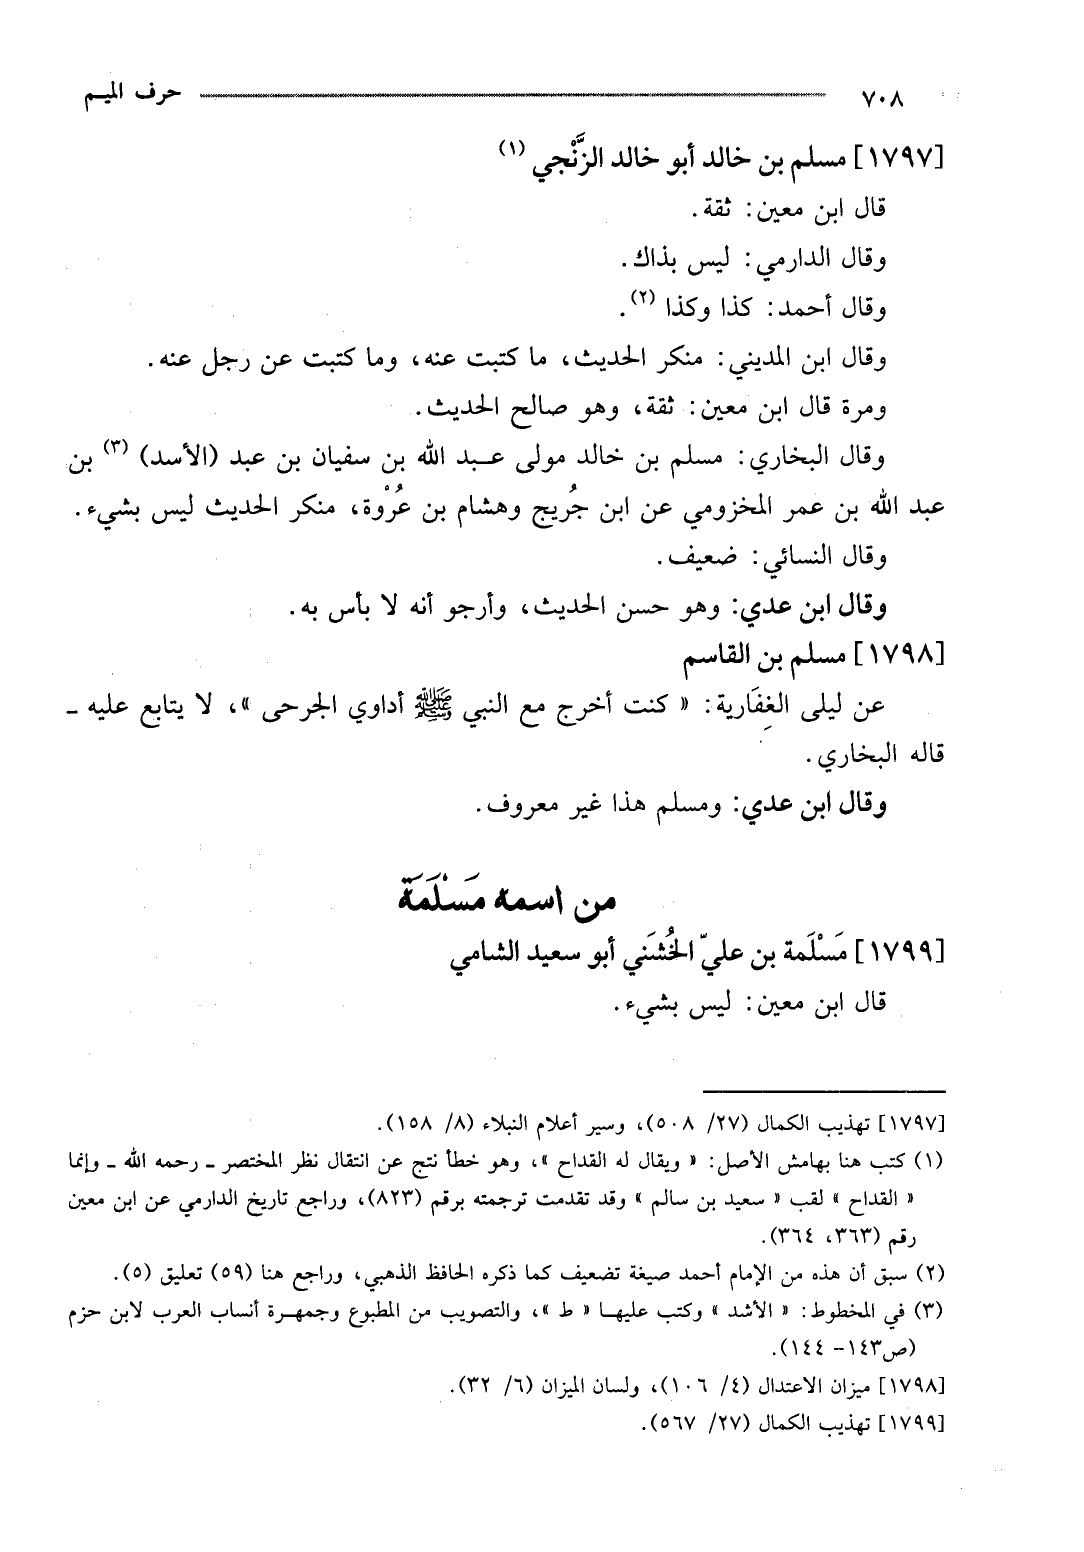 ٧٠٨ حرف الميـم
[١٧٩٧] مسلم بن خالد أبو خالد الزَّنْجي (١)
قال ابن معين: ثقة.
وقال الدارمي: ليس بذاك.
وقال أحمد: كذا وكذا (٢).
وقال ابن المديني: منكر الحديث، ما كتبت عنه، وما كتبت عن رجل عنه.
ومرة قال ابن معين: ثقة، وهو صالح الحديث.
وقال البخاري: مسلم بن خالد مولى عـبد الله بن سفيان بن عبد (الأسد) (٣) بن
عبد الله بن عمر المخزومي عن ابن جُريج وهشام بن عُرْوة، منكر الحديث ليس بشيء.
وقال النسائي: ضعيف.
وقال ابن عدي: وهو حسن الحديث، وأرجو أنه لا بأس به.
[١٧٩٨] مسلم بن القاسم
عن ليلى الغِفَارية: « كنت أخرج مع النبي ﷺ أداوي الجرحى »، لا يتابع عليه ـ
قاله البخاري.
وقال ابن عدي: ومسلم هذا غير معروف.
من اسمه مَسْلَمَة
[١٧٩٩] مَسْلَمة بن عليّ الخُشَني أبو سعيد الشامي
قال ابن معين: ليس بشيء.
[١٧٩٧] تهذيب الكمال (٢٧/ ٥٠٨)، وسير أعلام النبلاء (٨/ ١٥٨).
(١) كتب هنا بهامش الأصل: « ويقال له القداح »، وهو خطأ نتج عن انتقال نظر المختصر ـ رحمه الله ـ وإنما
« القداح » لقب « سعيد بن سالم » وقد تقدمت ترجمته برقم (٨٢٣)، وراجع تاريخ الدارمي عن ابن معين
رقم (٣٦٣، ٣٦٤).
(٢) سبق أن هذه من الإمام أحمد صيغة تضعيف كما ذكره الحافظ الذهبي، وراجع هنا (٥٩) تعليق (٥).
(٣) في المخطوط: « الأشد » وكتب عليهـا « ط »، والتصويب من المطبوع وجمهـرة أنساب العرب لابن حزم
(ص١٤٣- ١٤٤).
[١٧٩٨] ميزان الاعتدال (٤/ ١٠٦)، ولسان الميزان (٦/ ٣٢).
[١٧٩٩] تهذيب الكمال (٢٧/ ٥٦٧).